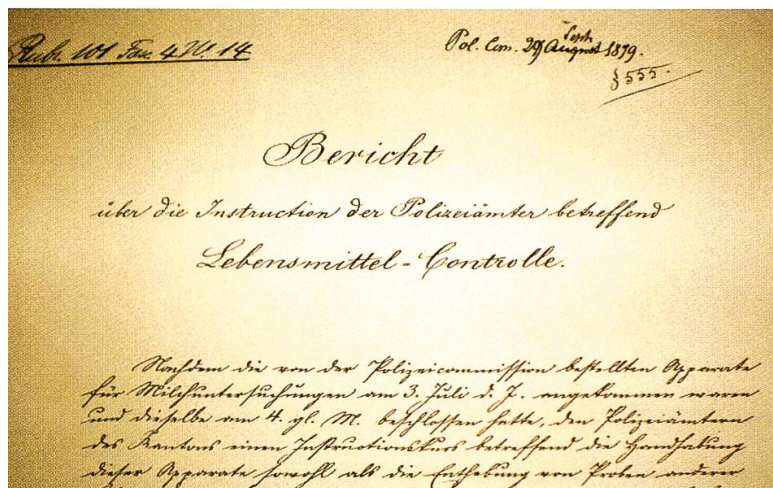 Rubr. 101 Fasc. 4 No. 14
Pol. Com. 29 August Sept. 1879.
§ 555.
Bericht
über die Instruction der Polizeiämter betreffend
Lebensmittel-Controlle.
Nachdem die von der Polizeicommission bestellten Apparate
für Milchuntersuchungen am 3. Juli d. J. angekommen waren
und dieselbe am 4. gl. M. beschlossen hatte, den Polizeiämtern
des Kantons einen Instructionskurs betreffend die Handhabung
dieser Apparate sowohl als die Enthebung von Proben anderer